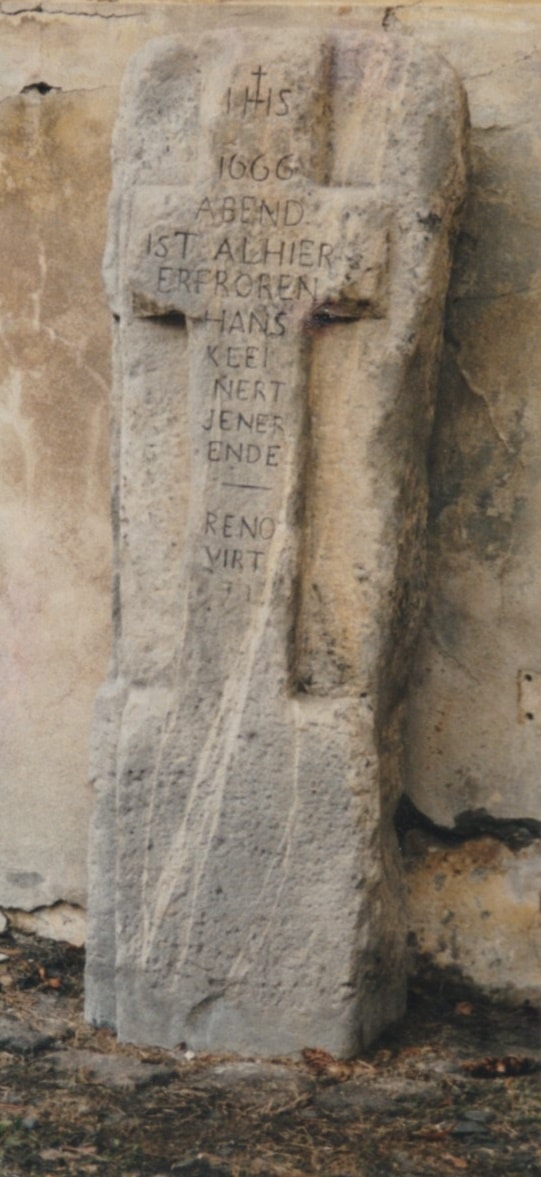 IHS
1666
ABEND
IST ALHIER
ERFROREN
HANS
KEEI
NERT
JENER
ENDE
RENO
VIRT
71